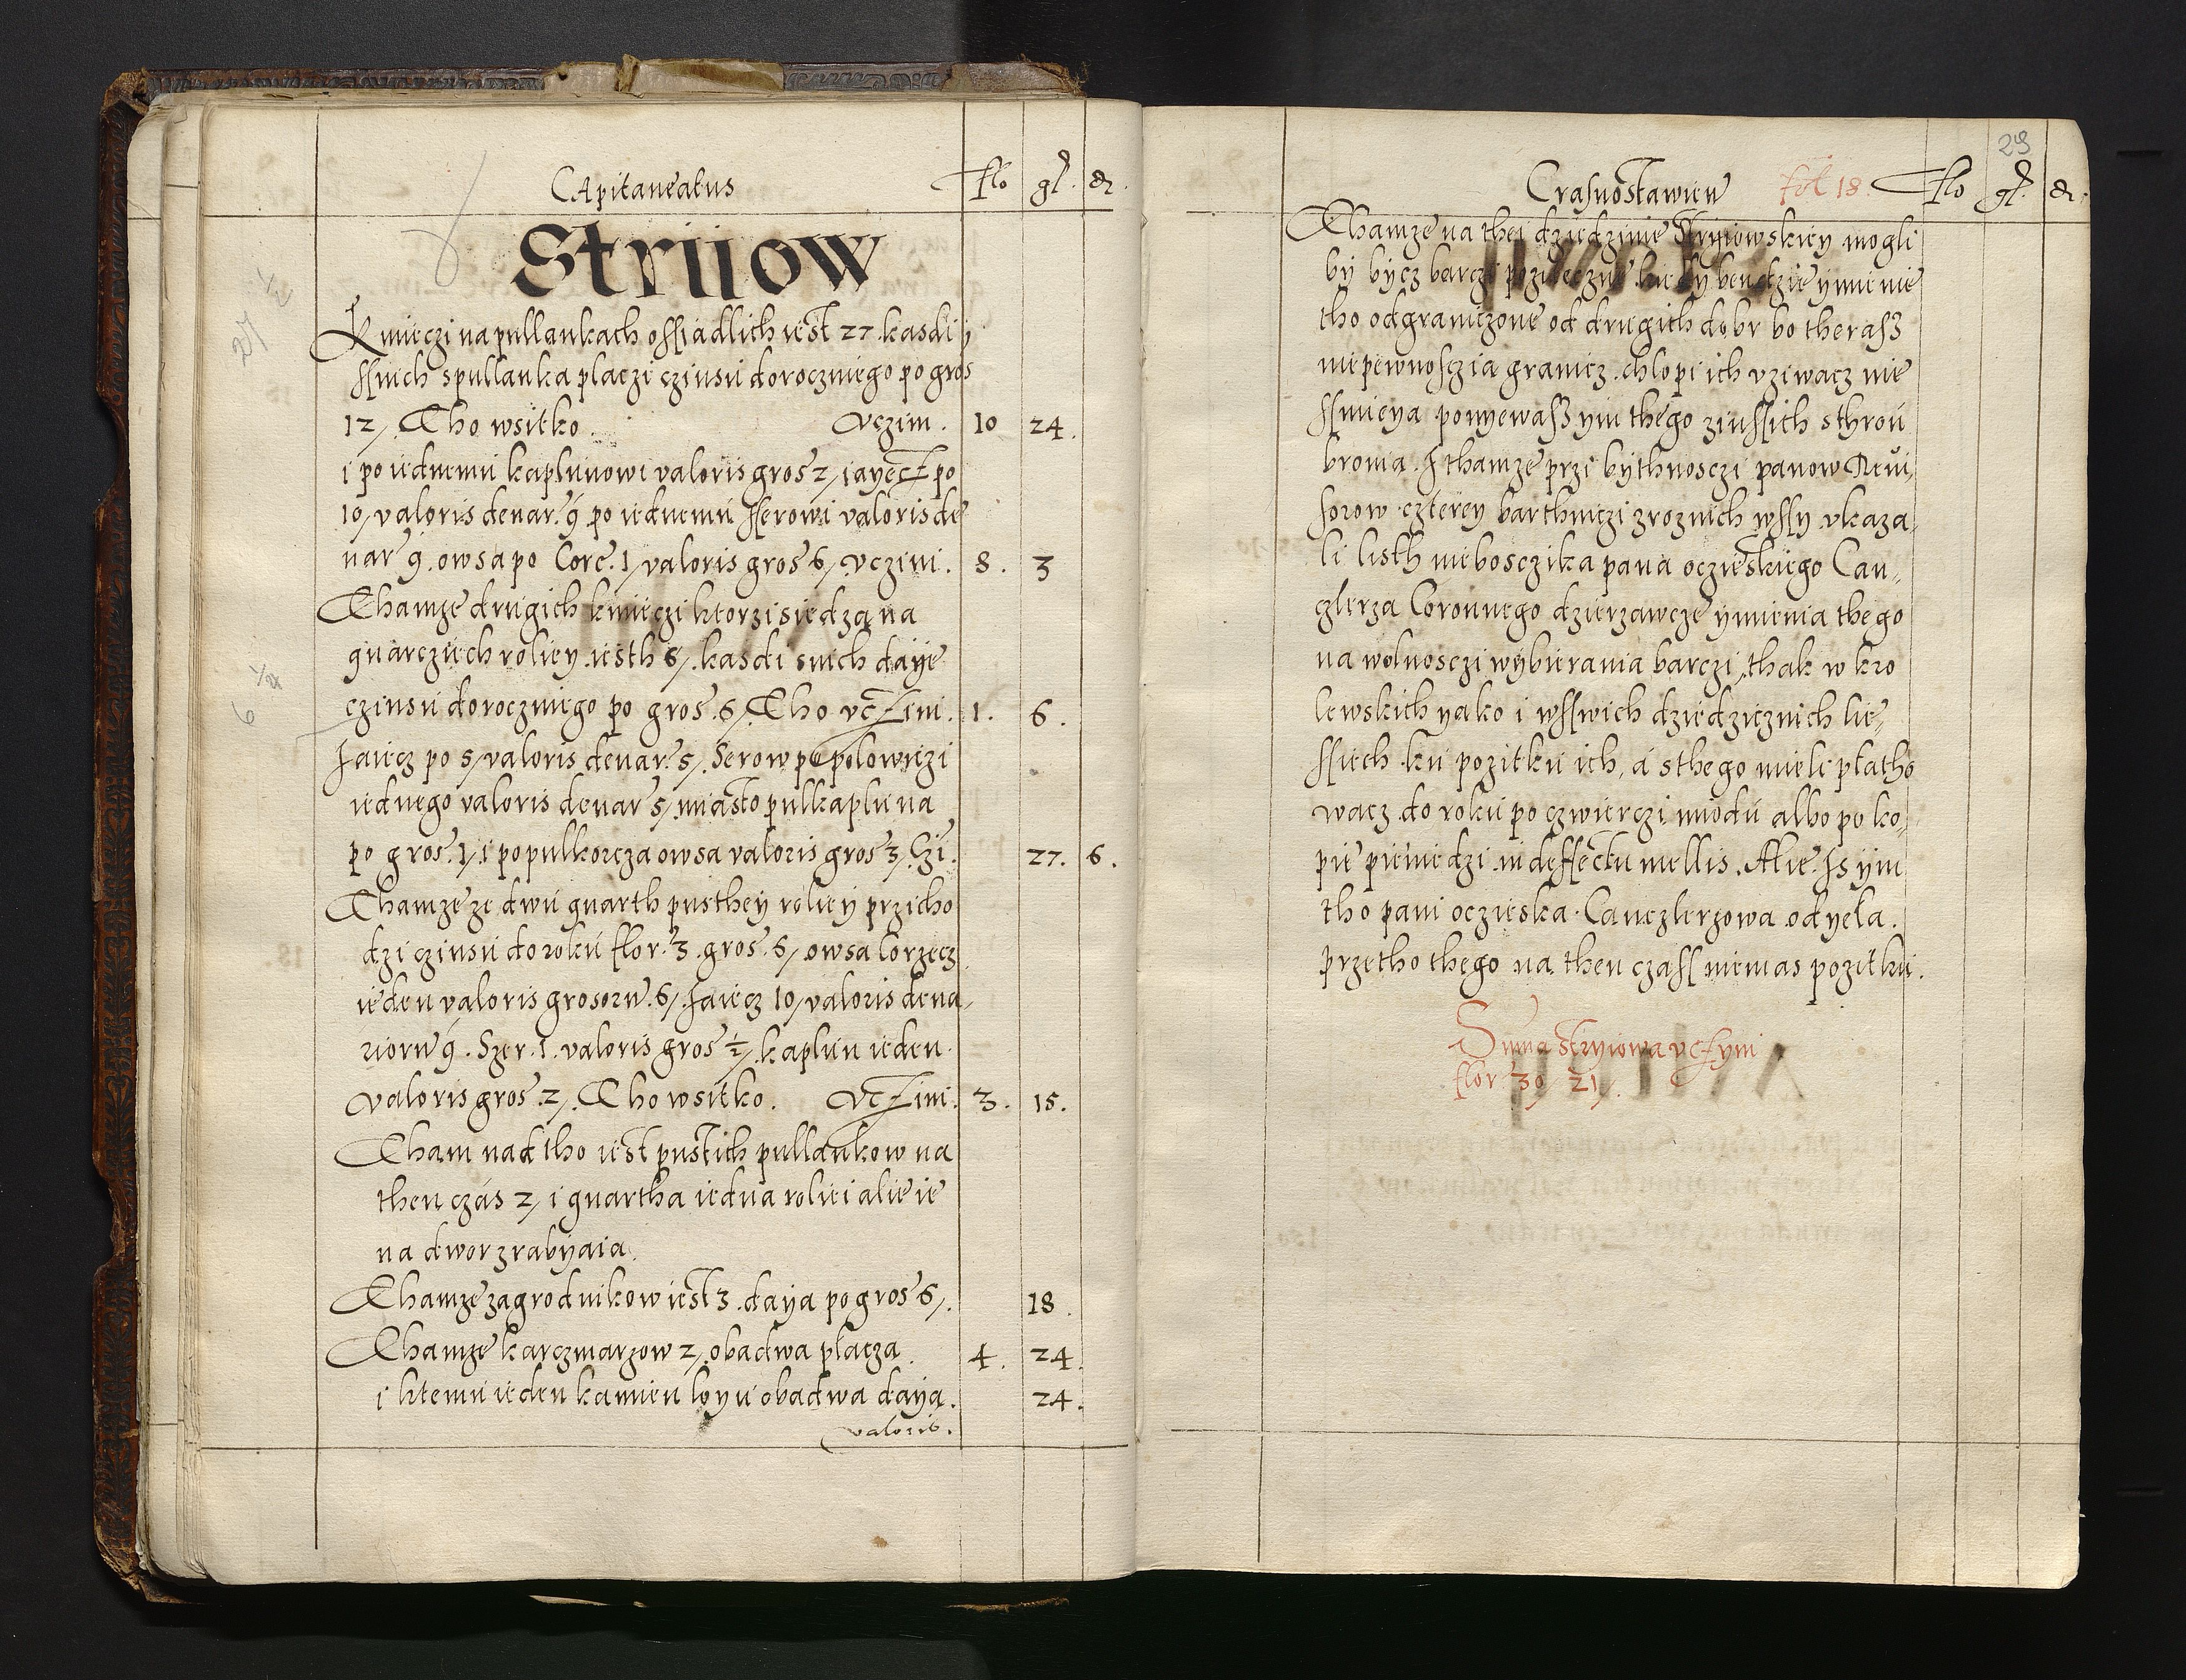 CApitaneatus Flo gł. đ.
Strijow
Kmieczi na pullankach ossiadlich iest 27. kasdi y
ssnich spullanka placzi czinsu doroczniego po gros
12/. Tho wsitko. Vczini. 10 24.
i po iednemu kaplunowi valoris gros 2/ iayecz po
10/ valoris denar. 9. po iednemu sserowi valoris de
nar 9. owsa po Core. 1/ valoris gros 6/ vczini. 8. 3
Thamze drugich kmieczi ktorzi siedzą na
quarcziech roliey iesth 6/. kasdi snich dayе
czinsu doroczniego po gros. 6/. Tho vczini. 1. 6.
Jaiecz po 5/ valoris denar. 5/. Serow po polowiczi
iednego valoris denar 5/. miasto pulkapluna
po gros. 1/. i po pulkorcza owsa valoris gros 3/. Czi. 27. 6.
Thamze ze dwu quarth pusthey roliey przicho
dzi czinsu do roku flor. 3. gros. 6/. owsa korzecz
ieden valoris grosorum. 6/. Jaiecz 10/ valoris dena-
riorum 9. Szer. 1. valoris gros ½/. kaplun ieden
valoris gros. 2/. Tho wsitko. Vczini. 3. 15.
Tham nad tho iest pustich pullankow na
then czas 2/ i quartha iedna roliei alie ie
na dwor zrabyaia.
Thamze zagrodnikow iest 3. daya po gros 6/. 18.
Thamze karczmarzow 2/. obadwa placza. 4. 24.
i ktemu ieden kamien loyu obadwa daya. 24.
valoris.
27 ½
6 ¼
29
Crasnostawien fol 18. Flo gł. đ.
Thamze na thei dziedzinie Stryiowskiey mogli
by bycz barczi pozyteczne kiedy bendzie ymienie
tho odgraniczone od drugich dobr bo therasz
niepewnosczia granicz. chlopi ich vziwacz nie
ssmieya ponyewasz ym thego zinssich sthron
bronia. I thamze przi bythnosczi panow Revi-
sorow czterey barthniczi zroznich wssy vkaza-
li listh nieboszcika pana oczieskiego Can-
czlerza Coronnego dzierzawcze ymienia thego
na wolnosczi wybierania barczi, thak w kro
lewskich yako i wsswich dziedzicznich lie-
ssiech ku pozitku ich, a sthego mieli platho
wacz do roku po czwierczi miodu albo po ko-
pie pieniedzi in deffectu mellis. Alie Is ym
tho pani oczieska Canczlerzowa odyeła.
przetho thego na then czass niemas pozitku.
Suma stryiowa vczyni
flor 30/ 21/.